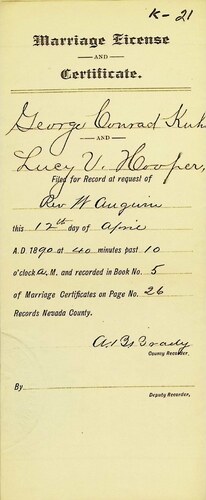 K-21
Marriage License
AND
Certificate.
George Conrad Kuh
AND
Lucy V. Hooper,
Filed for Record at request of
Rev W Anguin
this 12th day of April
A.D. 1890 at 40 minutes past 10
o'clock A. M. and recorded in Book No. 5
of Marriage Certificates on Page No. 26
Records Nevada County.
A. B. Brady
County Recorder.
By
Deputy Recorder.